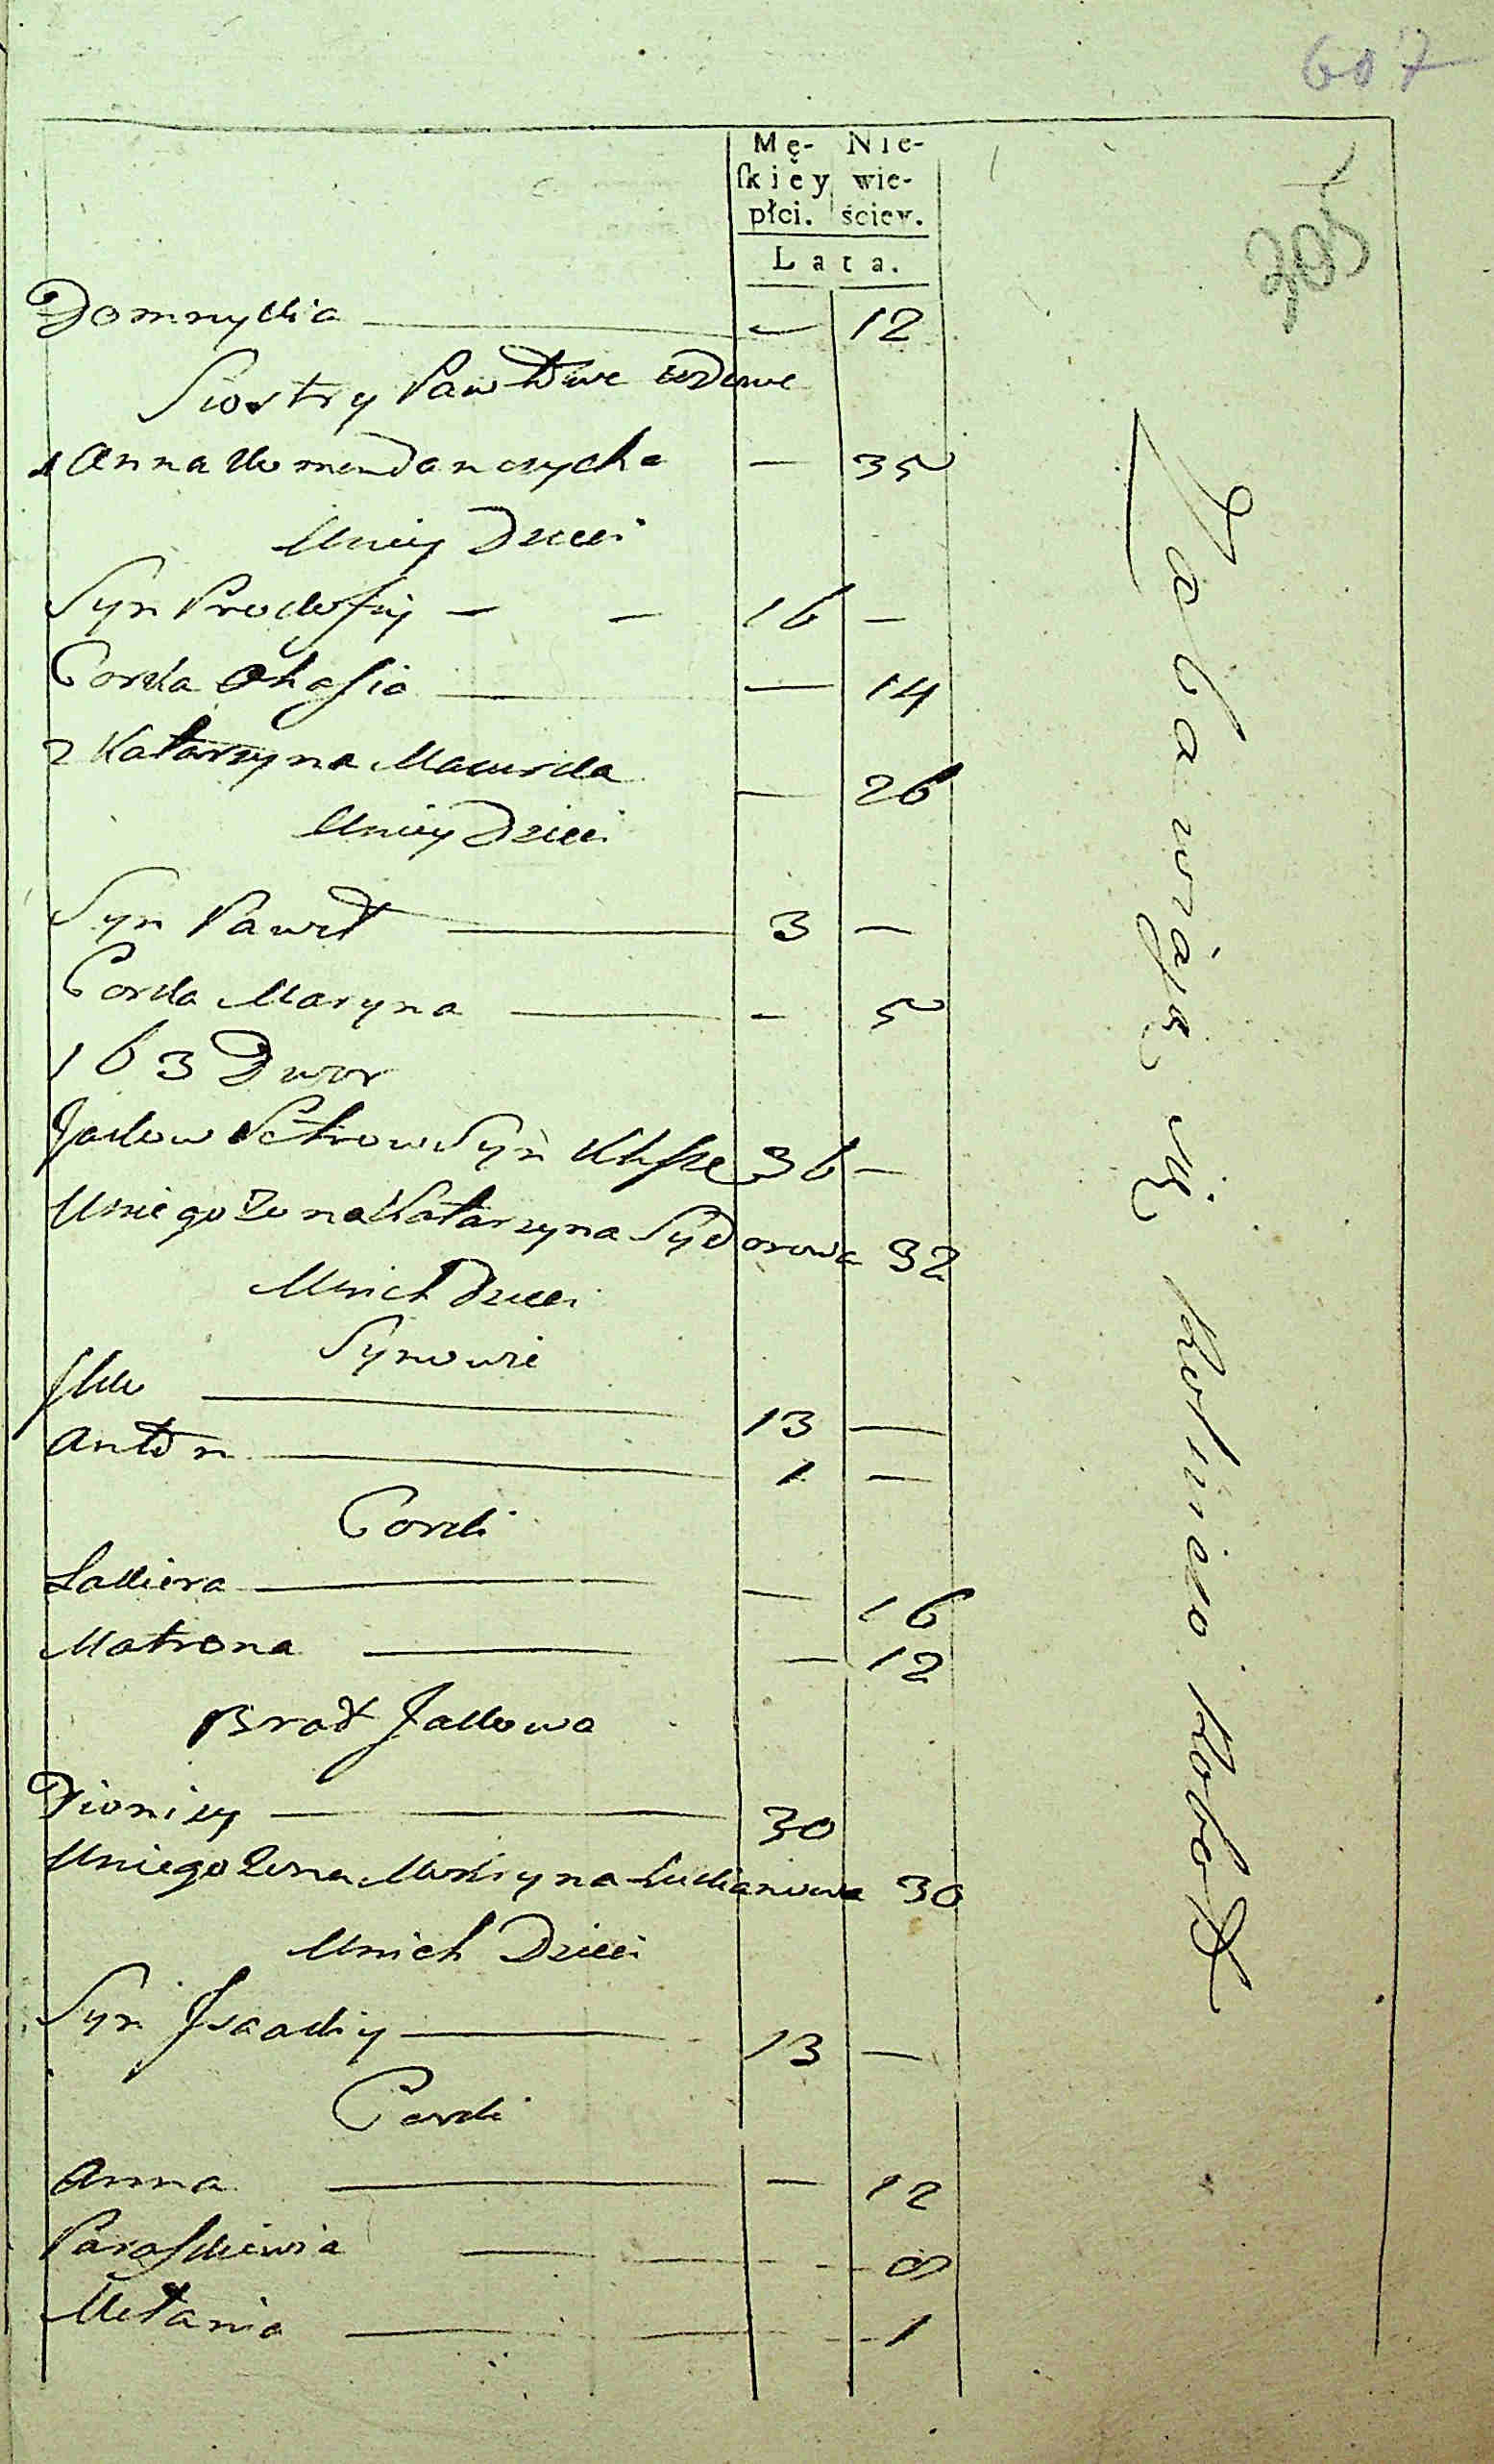 607
205
Mę- Nie-
ſkiey wie-
płci. ściey.
Lata.
Domnykia — 12
Siostry Pawłowe wdowe
1 Anna Komendanczycha — 35
Uniey Dzieci
Syn Prokofiy — — 16 —
Corka Ohafia — 14
2 Katarzyna Mazurka — 26
Uniey Dzieci
Syn Paweł — 3 —
Corka Maryna — - 5
163 Dwor
Jakow Petrow Syn 36 —
Uniego Zona Katarzyna Sydorowa 32
Unich Dzieci
Synowie
Jlko — 13 —
Anton — 1 —
Corki
Łukiera — — 16
Matrona — — 12
Brat Jakowa
Dionizy — — 30
Uniego Zona Maryna Lukianowa 30
Unich Dzieci
Syn Jsaakiy — 13 —
Corki
Anna — — 12
Paraſkiewia — — 8
Mełania — — 1
Zabawiaią się rolniczo Robotą